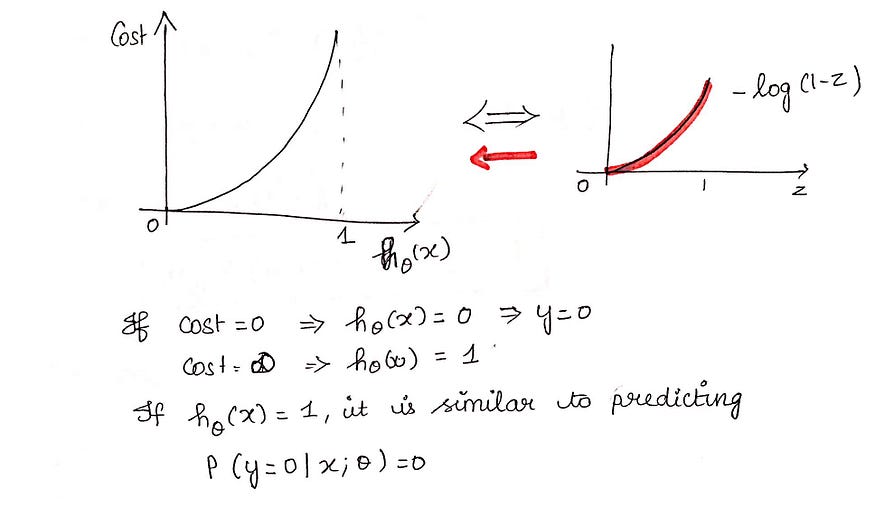 Cost
0
1
hθ(x)
⇔
- log (1-z)
0
1
z
If cost = 0 ⇒ hθ(x) = 0 ⇒ y=0
cost = ∞ ⇒ hθ(x) = 1
If hθ(x) = 1, it is similar to predicting
P (y=0 | x; θ) = 0